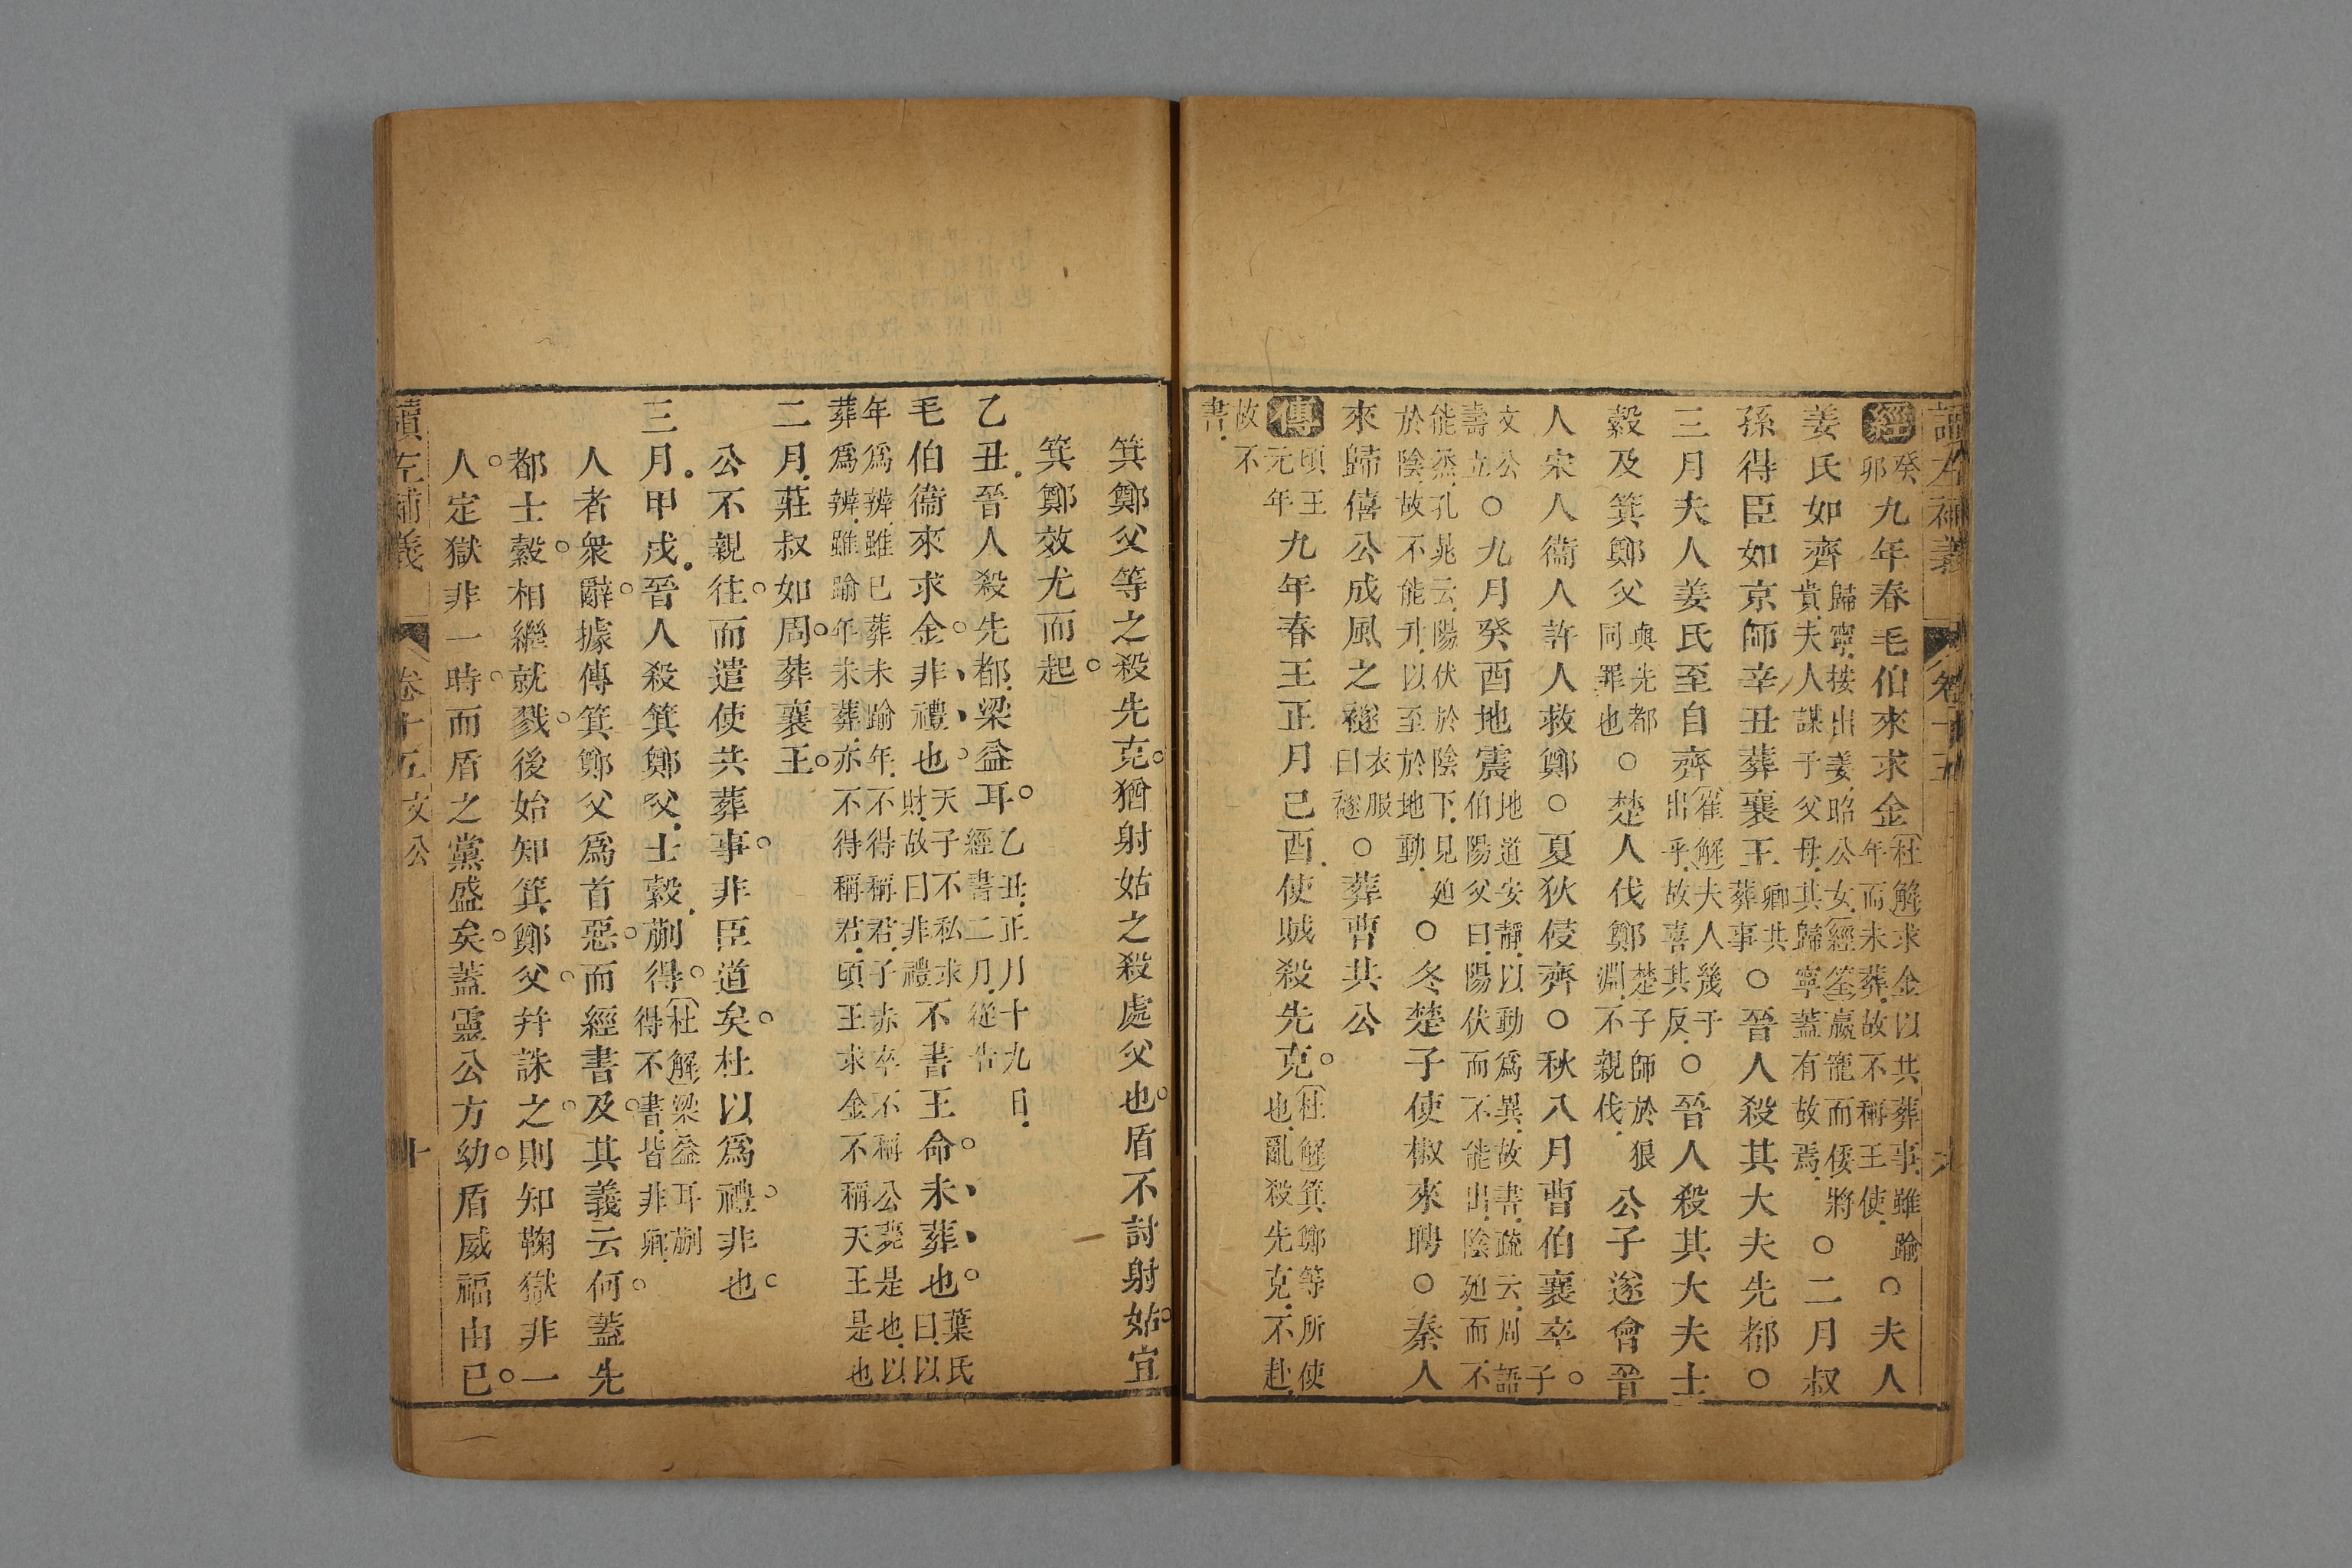 讀左補義　卷十五
經癸卯九年春毛伯來求金杜解求金以共葬事雖踰年而未葬故不稱王使○夫人
姜氏如齊歸寧按出姜昭公女經筌嬴寵而倭將貴夫人謀子父母其歸寧蓋有故焉○二月叔
孫得臣如京師辛丑葬襄王卿共葬事○晉人殺其大夫先都○
三月夫人姜氏至自齊崔解夫人幾于出乎故喜其反○晉人殺其大夫士
縠及箕鄭父與先都同罪也○楚人伐鄭楚子師於狼淵不親伐公子遂會晉
人宋人衞人許人救鄭○夏狄侵齊○秋八月曹伯襄卒子
文公壽立○九月癸酉地震地道安靜以動爲異故書疏云周語伯陽父曰陽伏而不能出陰廹而不
能烝孔晁云陽伏於陰下見廹於陰故不能升以至於地動○冬楚子使椒來聘○秦人
來歸僖公成風之襚衣服曰襚○葬曹共公
傳頃王元年九年春王正月己酉使賊殺先克杜解箕鄭等所使也亂殺先克不赴
故不書
箕鄭父等之殺先克猶射姑之殺處父也盾不討射姑宜
箕鄭效尤而起
乙丑晉人殺先都梁益耳乙丑正月十九日經書二月從告
毛伯衞來求金非禮也天子不私求財故曰非禮不書王命未葬也葉氏曰以
年爲辨雖已葬未踰年不得稱君子赤卒不稱公薨是也以葬爲辨雖踰年未葬亦不得稱君頃王求金不稱天王是也
二月莊叔如周葬襄王
公不親往而遣使共葬事非臣道矣杜以爲禮非也
三月甲戌晉人殺箕鄭父士縠蒯得杜解梁益耳蒯得不書皆非卿
人者衆辭據傳箕鄭父爲首惡而經書及其義云何蓋先
都士縠相繼就戮後始知箕鄭父幷誅之則知鞠獄非一
人定獄非一時而盾之黨盛矣蓋靈公方幼盾威福由已
讀左補義　卷十五　文公　十